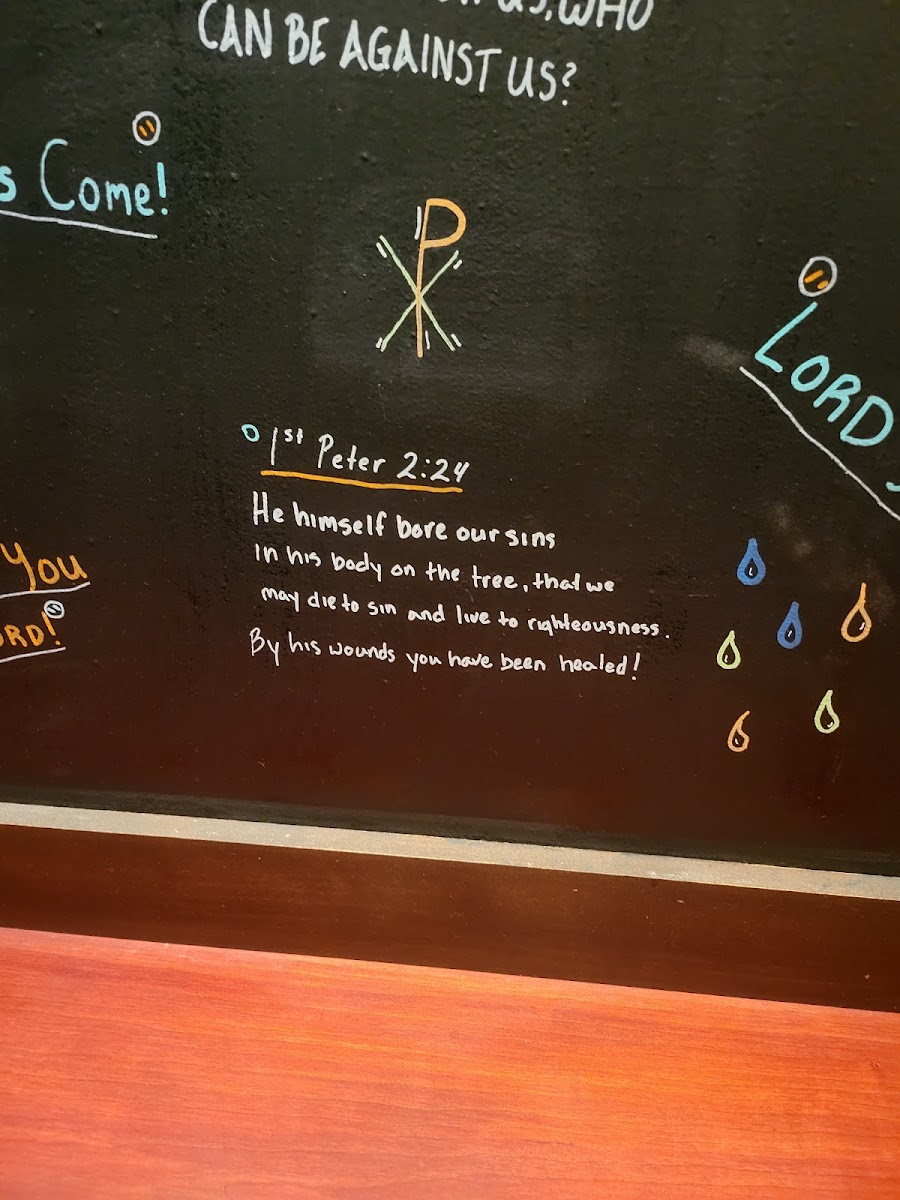 US, WHO
CAN BE AGAINST US?
s Come!
P
X
LORD
1st Peter 2:24
He himself bore our sins
In his body on the tree, that we
may die to sin and live to righteousness.
By his wounds you have been healed!
You
ORD!